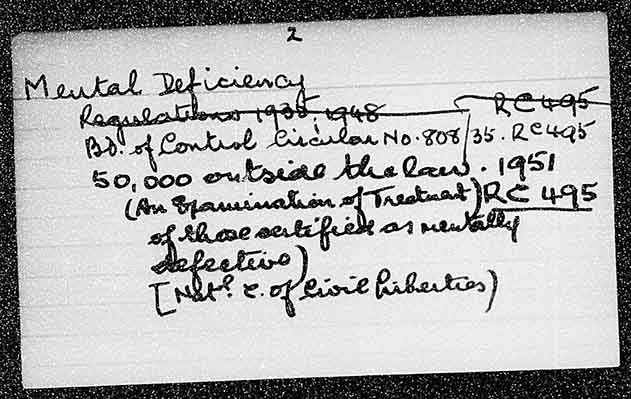 2
Mental Deficiency
Regulations 1935, 1948 RC 495
Bd. of Control Circular No. 808/35. RC 495
50,000 outside the law. 1951
(An Examination of Treatment) RC 495
of those certified as mentally
defective)
[Natl. C. of Civil Liberties)